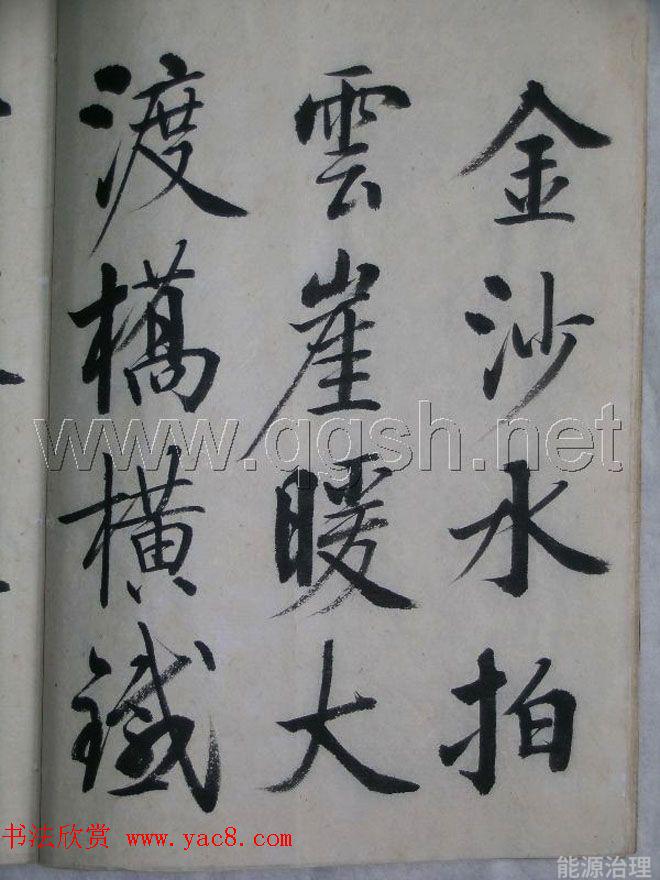 金沙水拍
雲崖暖大
渡橋橫鐵
www.qgsh.net
书法欣赏 www.yac8.com
能源治理